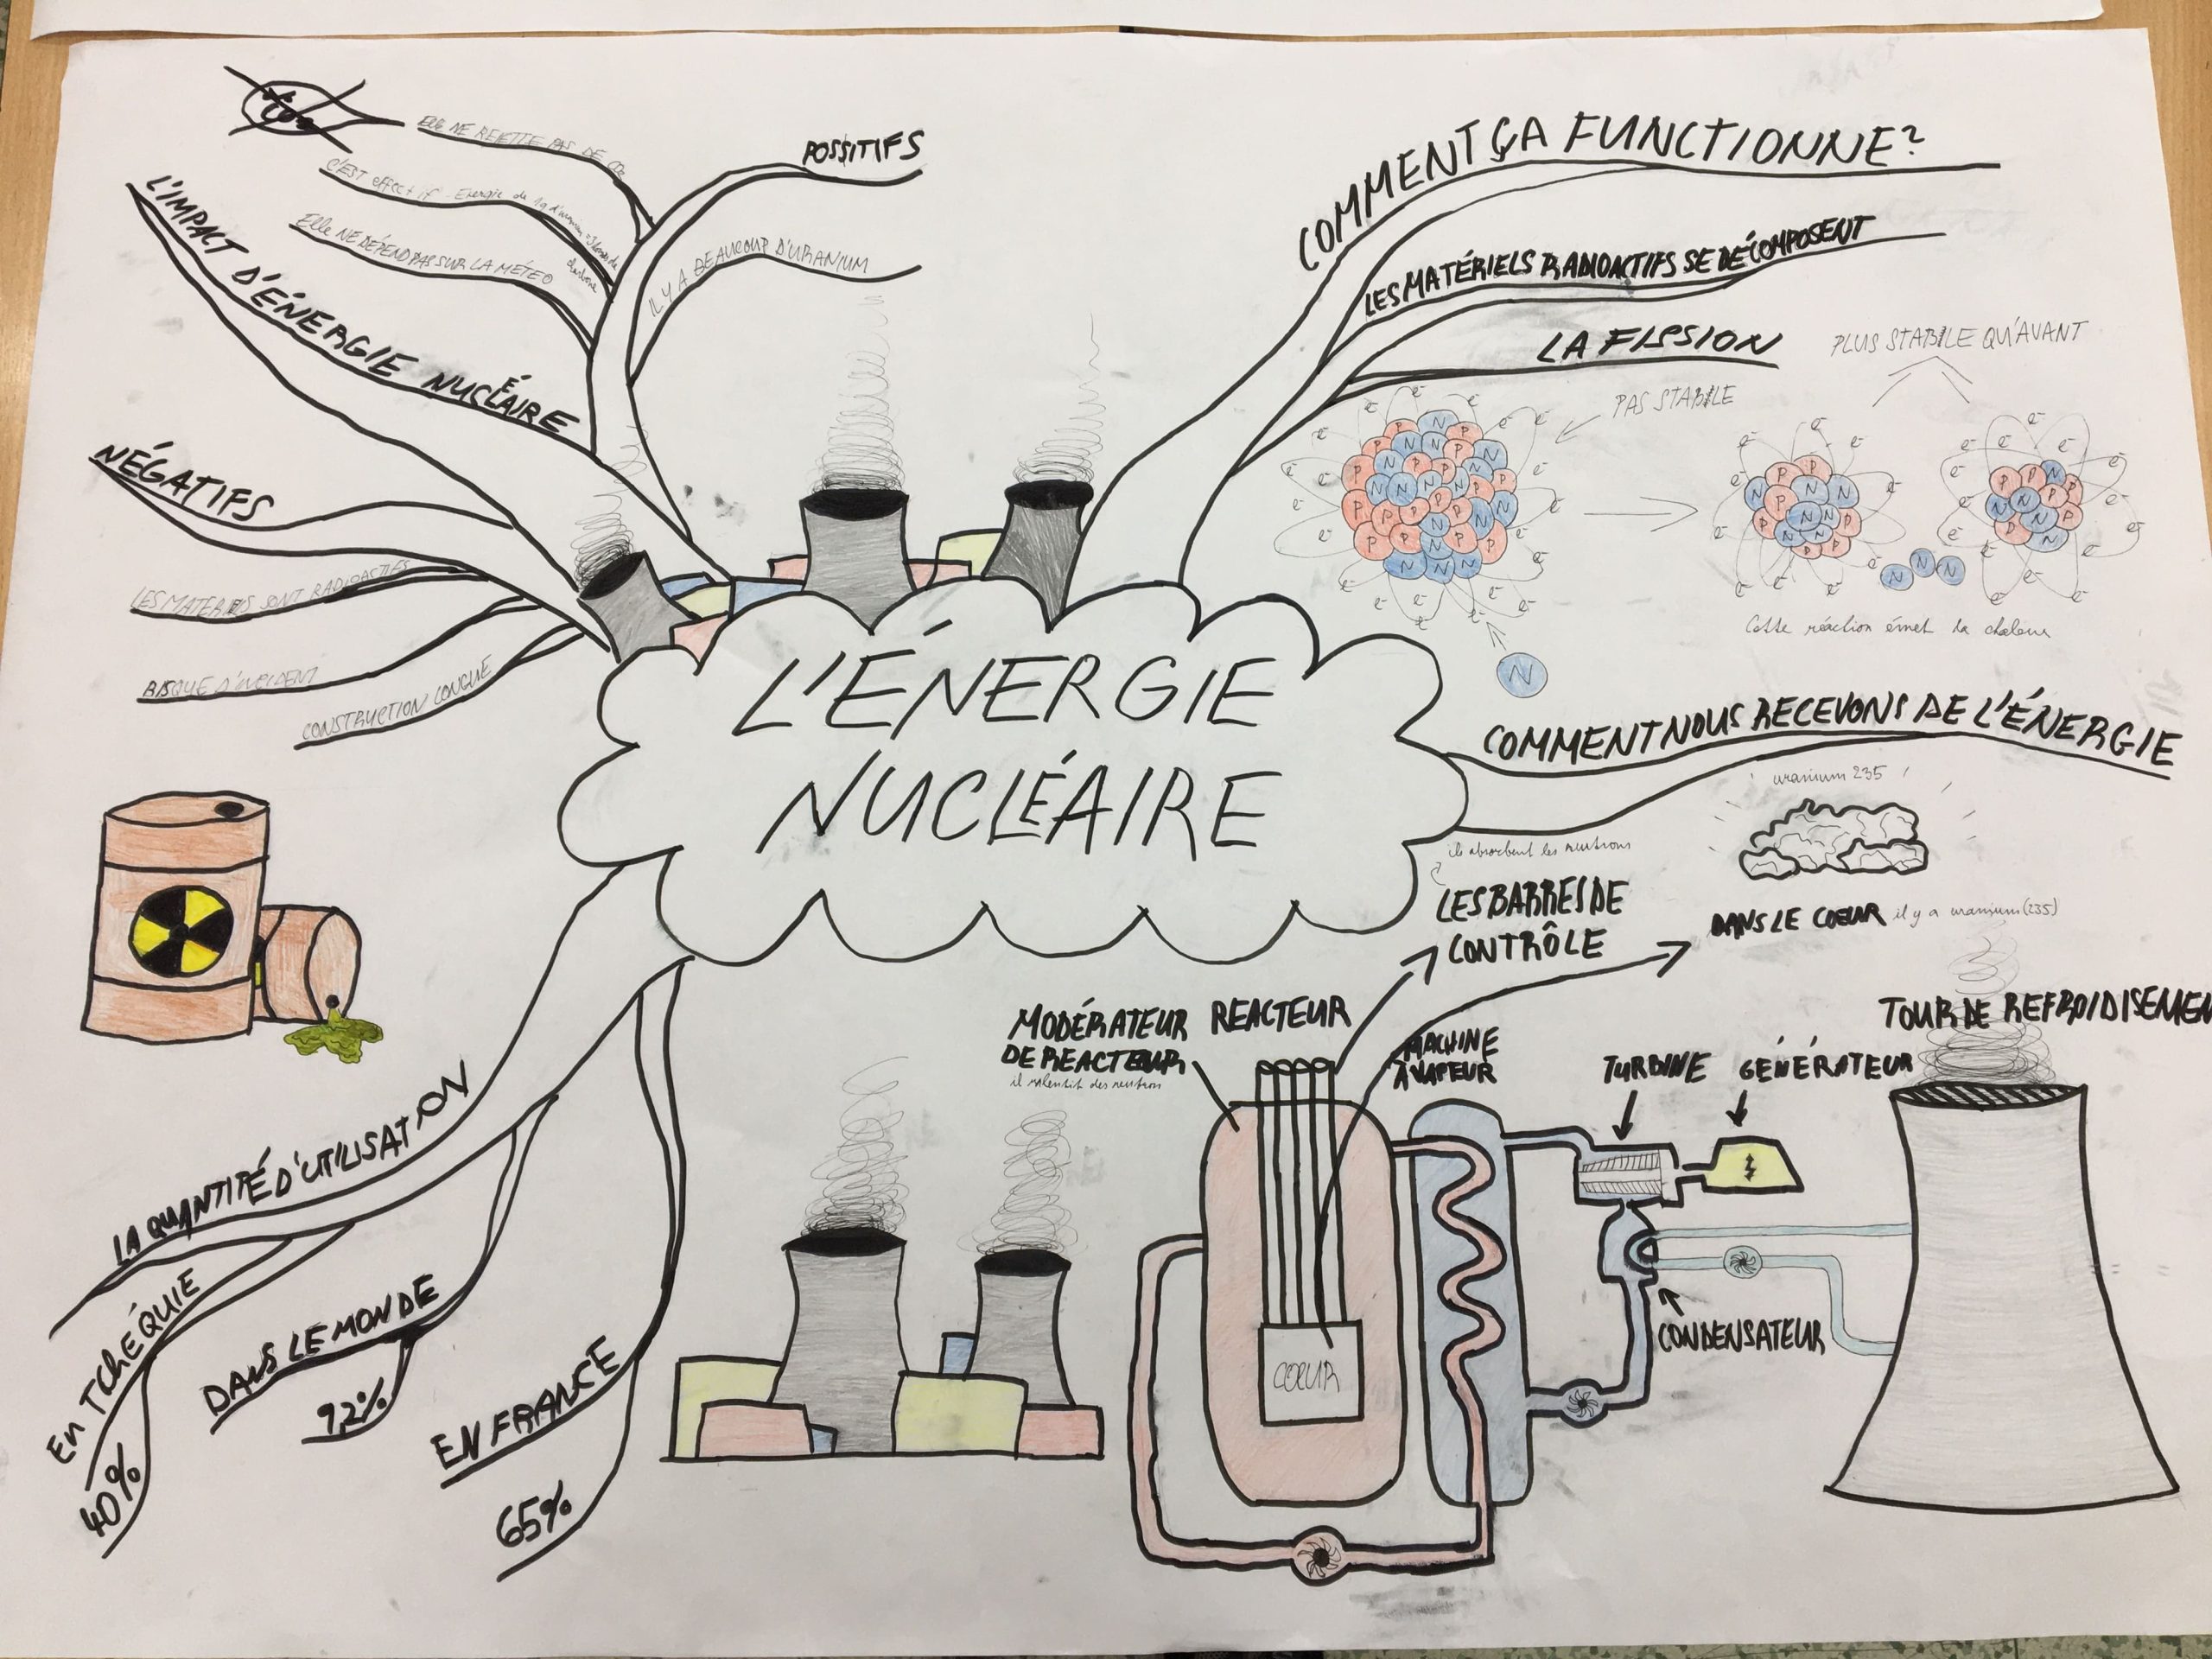 L'ÉNERGIE
NUCLÉAIRE
L'IMPACT D'ÉNERGIE NUCLÉAIRE
POSSITIFS
ELLE NE REJETTE PAS DE CO2
C'EST effectif - Energie de 1g d'uranium = de charbon
Elle NE DÉPEND PAS SUR LA MÉTEO
IL Y A BEAUCOUP D'URANIUM
NÉGATIFS
LES MATERIELS SONT RADIOACTIFS
RISQUE D'INCIDENT
CONSTRUCTION LONGUE
COMMENT ÇA FUNCTIONNE?
LES MATÉRIELS RADIOACTIFS SE DÉCOMPOSENT
LA FISSION
PLUS STABILE QU'AVANT
PAS STABILE
N
N N N
Cette réaction émet la chaleur
COMMENT NOUS RECEVONS DE L'ÉNERGIE
uranium 235
ils absorbent les neutrons
LES BARRES DE
CONTRÔLE
DANS LE COEUR il y a uranium (235)
MODÉRATEUR
DE REACTEUR
il ralentit des neutron
REACTEUR
MACHINE
À VAPEUR
TURBINE
GÉNÉRATEUR
TOUR DE REFROIDISEMEN
COEUR
CONDENSATEUR
LA QUANTITÉ D'UTILISATION
En TchÉQUIE
40%
DANS LE MONDE
9,2%
EN FRANCE
65%